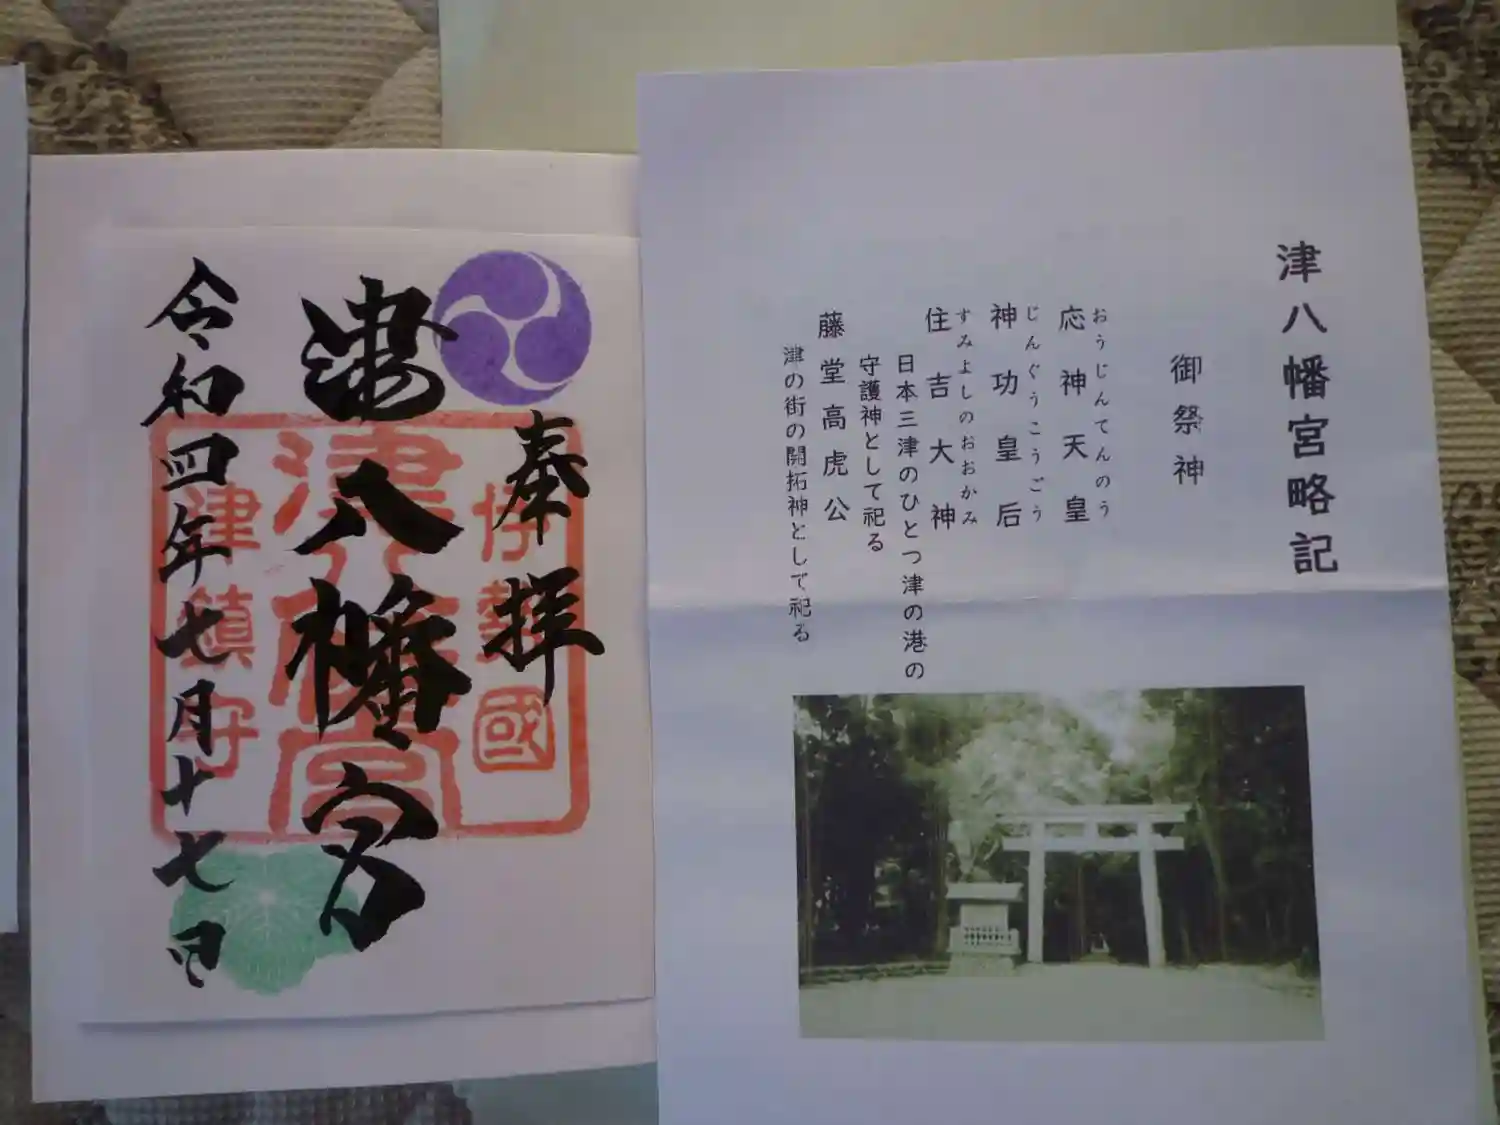 津八幡宮略記
御祭神
おうじんてんのう
応神天皇
じんぐうこうごう
神功皇后
すみよしのおおかみ
住吉大神
日本三津のひとつ津の港の
守護神として祀る
藤堂高虎公
津の街の開拓神として祀る
奉拝
津八幡宮
令和四年七月十七日
伊勢國
津八幡宮
津鎮守